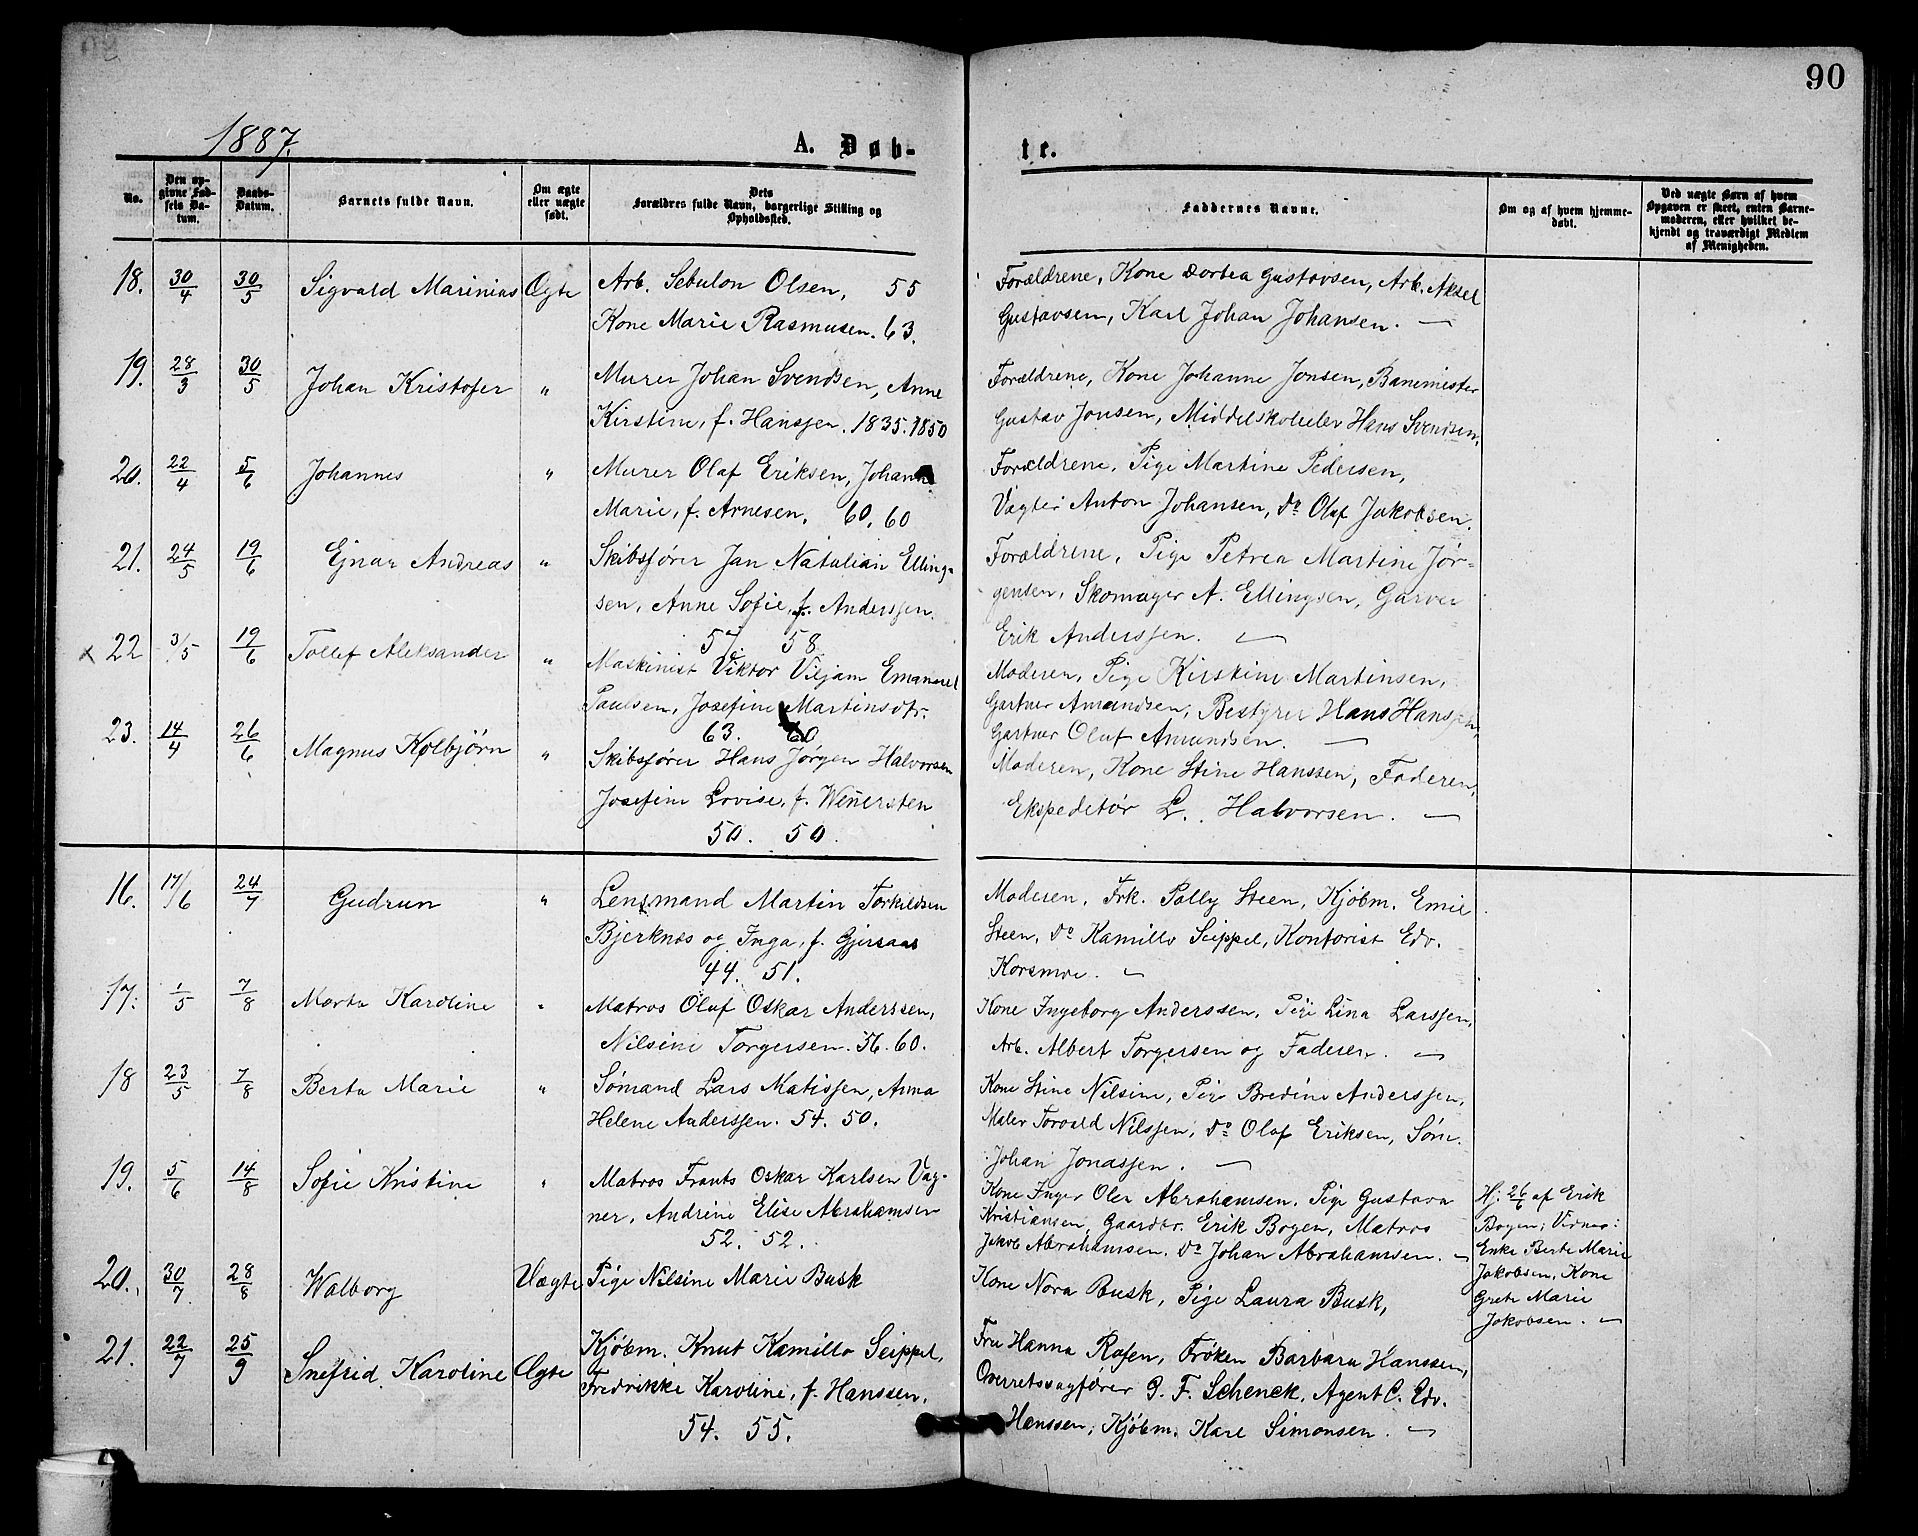 90
1887.
A. Døb-
te.
No.
Den op-
givne Fød-
sels Da-
tum.
Daabs-
Datum.
Barnets fulde Navn.
Om ægte
eller uægte
født.
Dets
Forældres fulde Navn, borgerlige Stilling og
Opholdssted.
Faddernes Navne.
Om og af hvem hjemme-
døbt.
Ved uægte Børn af hvem
Opgaven er skeet, enten Barne-
moderen, eller hvilket be-
kjendt og troværdigt Medlem
af Menigheden.
18. 30/4 30/5 Sigvald Marinius Ægte Arb. Sebulon Olsen, 55
Kone Marie Rasmusen. 63.
Forældrene, Kone Dortea Gustavsen, Arb. Aksel
Gustavsen, Karl Johan Johansen. —
19. 28/3 30/5 Johan Kristofer " Murer Johan Svendsen, Anne
Kirstine, f. Hanssen. 1835. 1850
Forældrene, Kone Johanne Jonsen, Banemester
Gustav Jonsen, Middelskoleelev Hans Svendsen.
20. 22/4 5/6 Johannes " Murer Olaf Eriksen, Johanne
Marie, f. Arnesen. 60. 60
Forældrene, Pige Martine Pedersen,
Vægter Anton Johansen, Do Olaf Jakobsen.
21. 24/5 19/6 Ejnar Andreas " Skibsfører Jan Natalian Elling-
sen, Anne Sofie, f. Anderssen.
57 58
Forældrene, Pige Petrea Martine Jør-
gensen, Skomager A. Ellingsen, Garver
Erik Anderssen. —
x 22 3/5 19/6 Tollef Aleksander " Maskinist Viktor Viljam Emanuel
Paulsen, Josefine Martinsdtr.
63. 60
Moderen, Pige Kirstine Martinsen,
Gartner Amundsen, Bestyrer Hans Hanssen,
Gartner Oluf Amundsen. —
23. 14/4 26/6 Magnus Kolbjørn " Skibsfører Hans Jørgen Halvorsen
Josefine Lovise, f. Wenersten
50. 50.
Moderen, Kone Stine Hanssen, Faderen,
Ekspeditør L. Halvorsen. —
16. 17/6 24/7 Gudrun " Lensmand Martin Torkildsen
Bjerknes og Inga, f. Gjersaas
44. 51.
Moderen, Frk. Pally Steen, Kjøbm. Emil
Steen, Do Kamillo Seippel, Kontorist Edv.
Korsmoe. —
17. 1/5 7/8 Marta Karoline " Matros Oluf Oskar Anderssen,
Nilsine Torgersen. 56. 60.
Kone Ingeborg Anderssen, Pige Lina Larssen,
Arb. Albert Torgersen og Faderen. —
18 23/5 7/8 Berta Marie " Sømand Lars Matissen, Anna
Helene Anderssen. 54. 50.
Kone Stine Nilsine, Pige Bredine Anderssen,
Maler Torvald Nilssen, Do Olaf Eriksen, Søm.
Johan Jonassen. —
19. 5/6 14/8 Sofie Kristine " Matros Frants Oskar Karlsen Vag-
ner, Andrine Elise Abrahamsen
52. 52.
Kone Inger Olea Abrahamsen. Pige Gustava
Kristiansen, Gaardbr. Erik Bogen, Matros
Jakob Abrahamsen. Do Johan Abrahamsen. —
Hj: 26/6 af Erik
Bogen; Vidner:
Enke Berte Marie
Jakobsen, Kone
Grete Marie
Jakobsen. —
20. 30/7 28/8 Walborg Uægte Pige Nilsine Marie Busk
Kone Nora Busk, Pige Laura Busk,
21. 22/7 25/9 Snefrid Karoline Ægte Kjøbm. Knut Kamillo Seippel,
Fredrikke Karoline, f. Hanssen.
54. 55.
Fru Hanna Rosen, Frøken Barbara Hanssen,
Overretssagfører G. F. Schenck, Agent C. Edv.
Hanssen, Kjøbm. Karl Simonsen. —